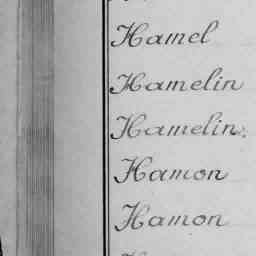 Hamel
Hamelin
Hamelin.
Hamon
Hamon